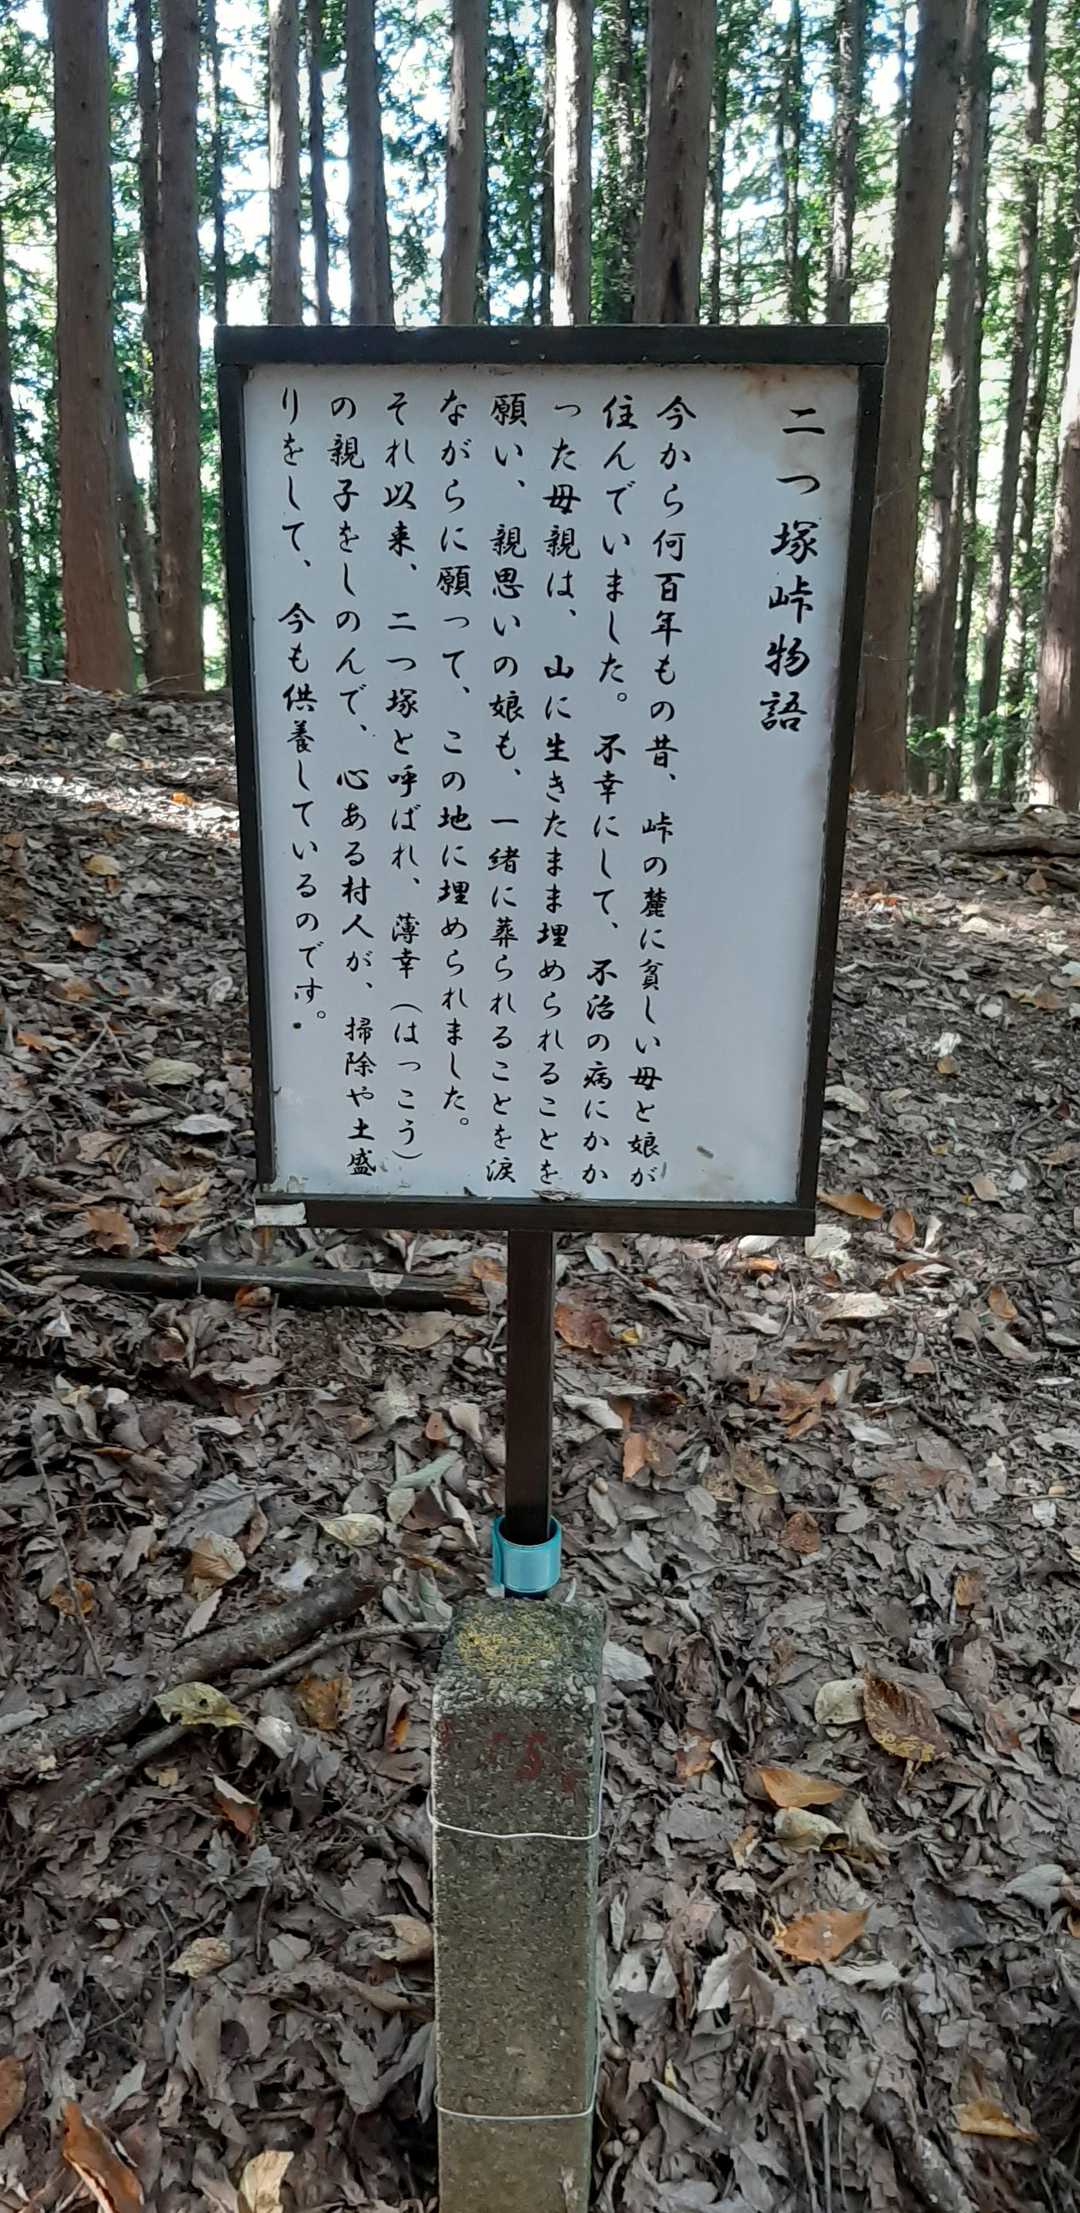 二つ塚峠物語
今から何百年もの昔、峠の麓に貧しい母と娘が
住んでいました。不幸にして、不治の病にかか
った母親は、山に生きたまま埋められることを
願い、親思いの娘も、一緒に葬られることを涙
ながらに願って、この地に埋められました。
それ以来、二つ塚と呼ばれ、薄幸（はっこう）
の親子をしのんで、心ある村人が、掃除や土盛
りをして、今も供養しているのです。